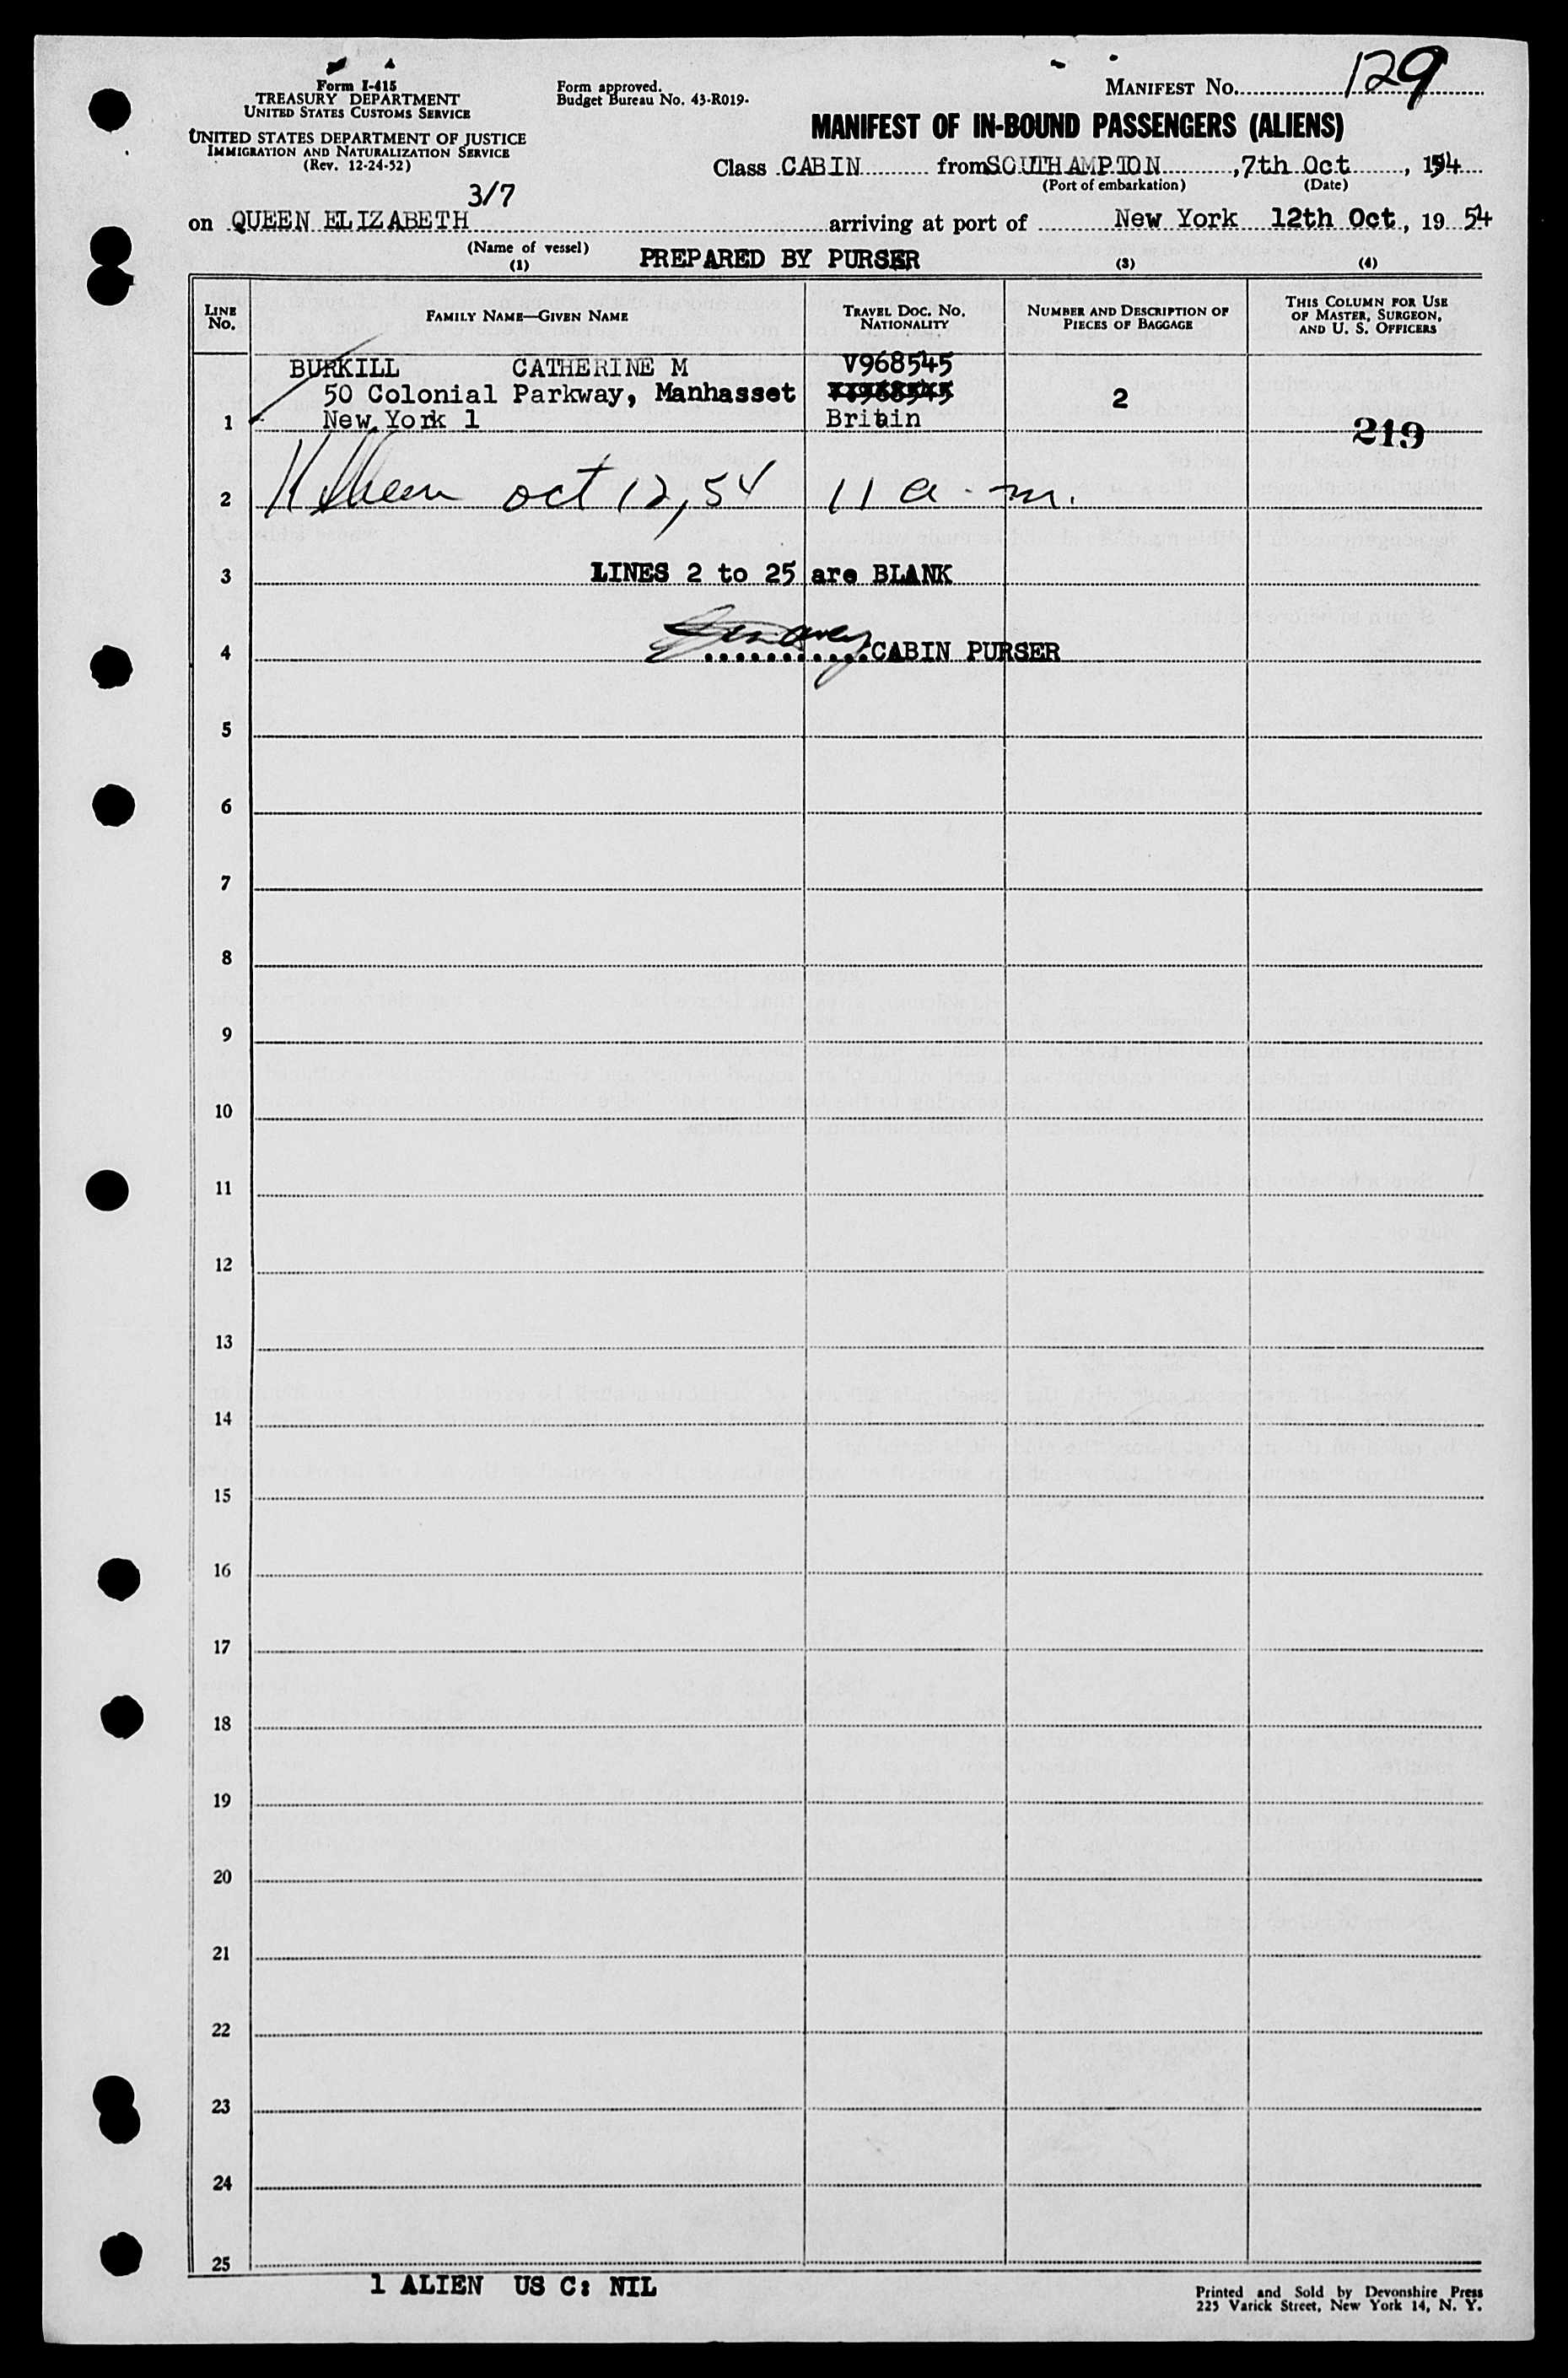 Form I-415
TREASURY DEPARTMENT
UNITED STATES CUSTOMS SERVICE
UNITED STATES DEPARTMENT OF JUSTICE
IMMIGRATION AND NATURALIZATION SERVICE
(Rev. 12-24-52)
Form approved.
Budget Bureau No. 43-R019.
MANIFEST NO. 129
MANIFEST OF IN-BOUND PASSENGERS (ALIENS)
Class CABIN from SOUTHAMPTON, 7th Oct, 1954
(Port of embarkation) (Date)
3/7
on QUEEN ELIZABETH arriving at port of New York 12th Oct, 19 54
(Name of vessel)
(1) PREPARED BY PURSER (3) (4)
LINE NO. FAMILY NAME—GIVEN NAME TRAVEL DOC. NO. NATIONALITY NUMBER AND DESCRIPTION OF PIECES OF BAGGAGE THIS COLUMN FOR USE OF MASTER, SURGEON, AND U. S. OFFICERS
BURKILL CATHERINE M V968545
50 Colonial Parkway, Manhasset 2
1 New York 1 Britain 219
2 oct 12, 54 11 a.m.
3 LINES 2 to 25 are BLANK
4 ...........CABIN PURSER
5
6
7
8
9
10
11
12
13
14
15
16
17
18
19
20
21
22
23
24
25
1 ALIEN US C: NIL
Printed and Sold by Devonshire Press
225 Varick Street, New York 14, N. Y.